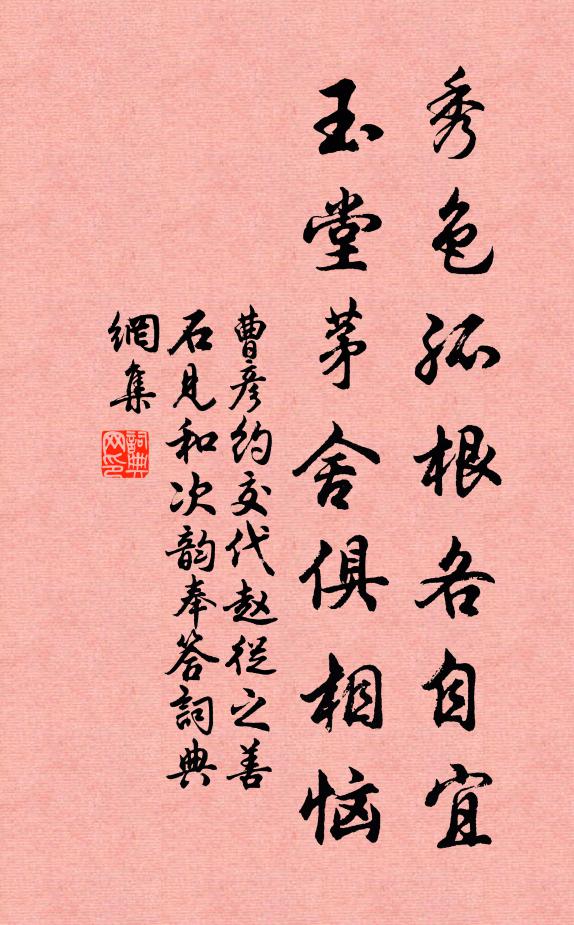 秀色孤根各自宜
玉堂茅舍俱相恼
曹彦约交代赵從之善
石見和次韵奉答詞典
網集
詞典网印